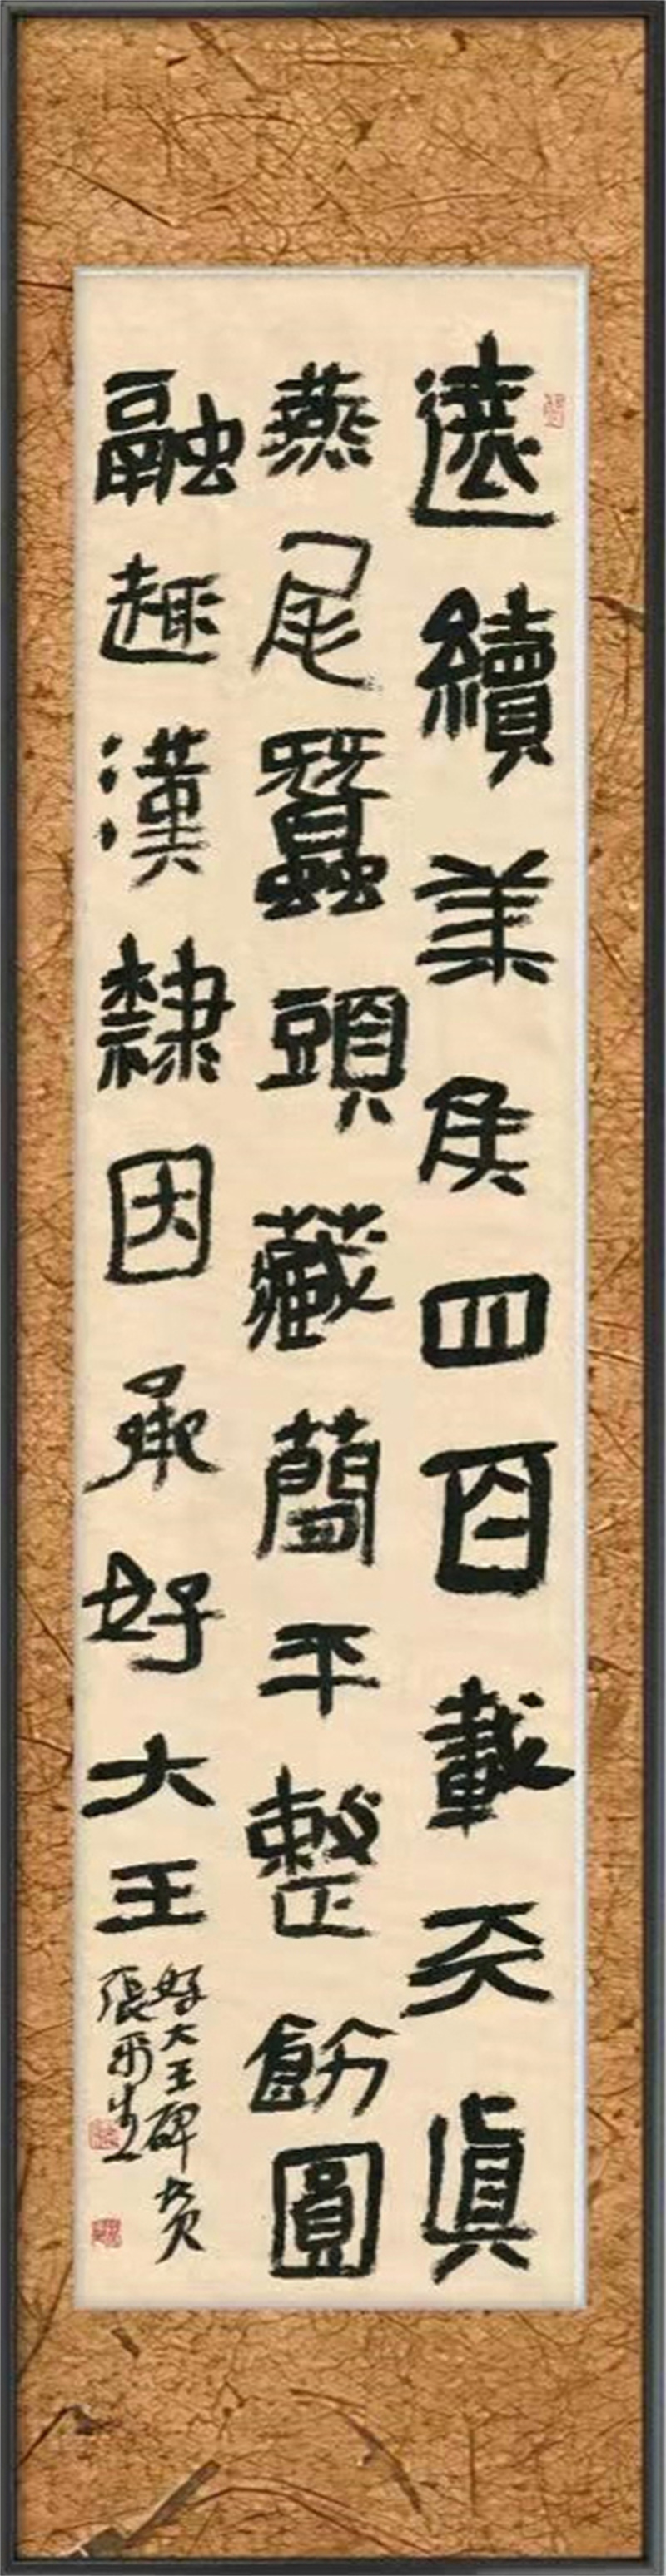 遠續美侯四百載天真
燕尾蠶頭藏簡平整飭圓
融趣漢隸因承好大王
好大王碑贊
張